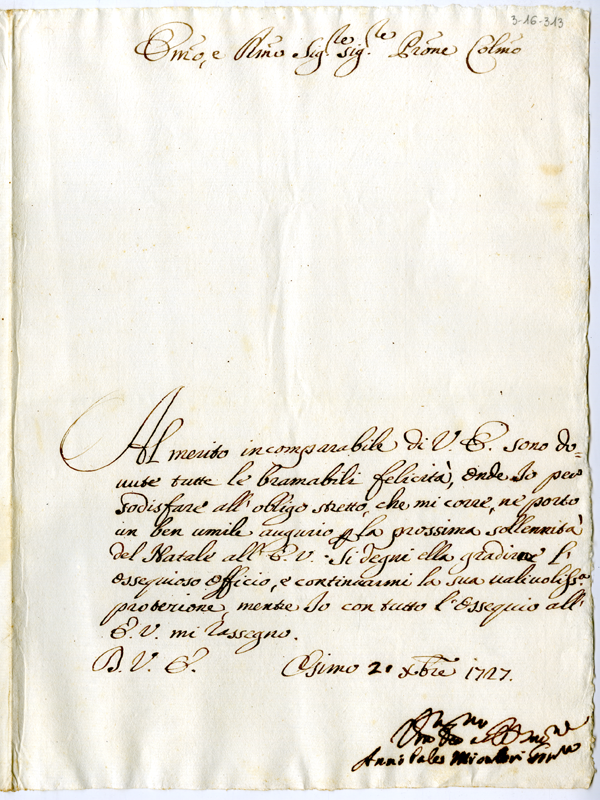 3-16-313
Emo, e Rmo Sig.re Sig.re Prone Colmo
Al merito incomparabile di V. E. sono do=
vute tutte le bramabili felicità, onde Io per
sodisfare all' obligo stretto, che mi corre, ne porto
un ben umile augurio p la prossima sollennità
del Natale all' E. V. Si degni ella gradirne l'
ossequioso officio, e continuarmi la sua valivoliss.a
protezione, mentre Io con tutto l'ossequio all'
E. V. mi rassegno.
D. V. E. Osimo 20 Xbre 1727.